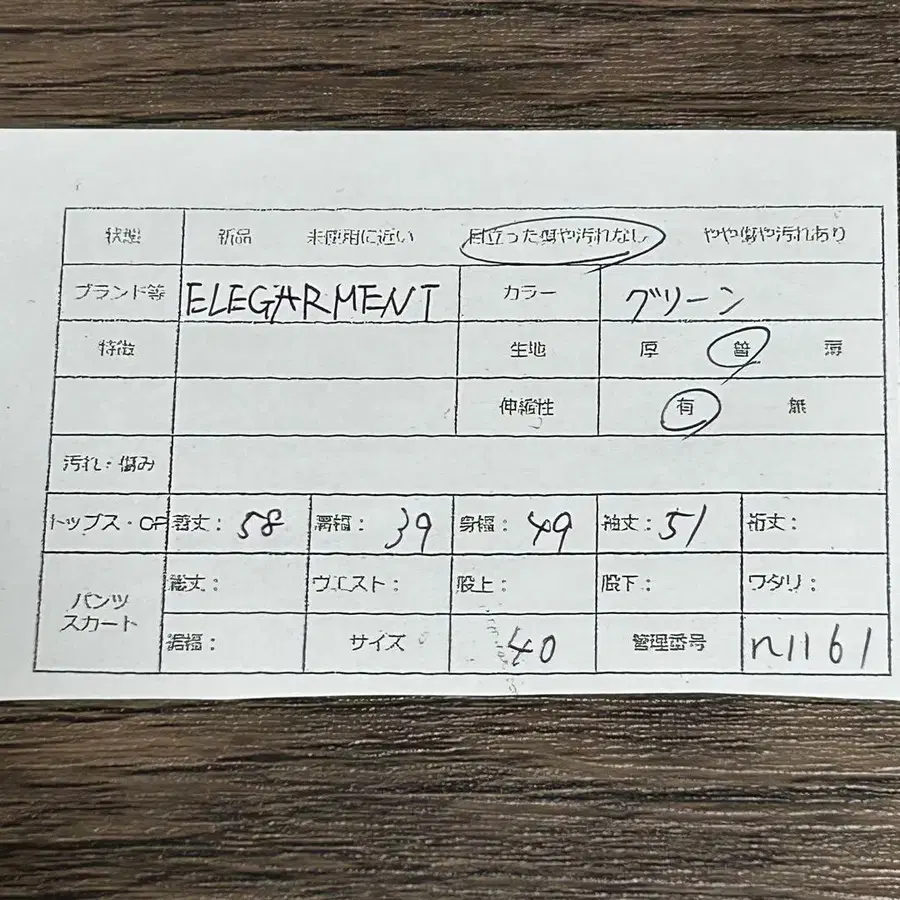 状態 新品 未使用に近い 目立った傷や汚れなし やや傷や汚れあり
ブランド等 ELEGARMENT カラー グリーン
特徴 生地 厚 普 薄
伸縮性 有 無
汚れ：傷み
トップス・OP 着丈： 58 肩幅： 39 身幅： 49 袖丈： 51 裄丈：
パンツ
スカート
総丈： ウエスト： 股上： 股下： ワタリ：
裾幅： サイズ 40 管理番号 n1161